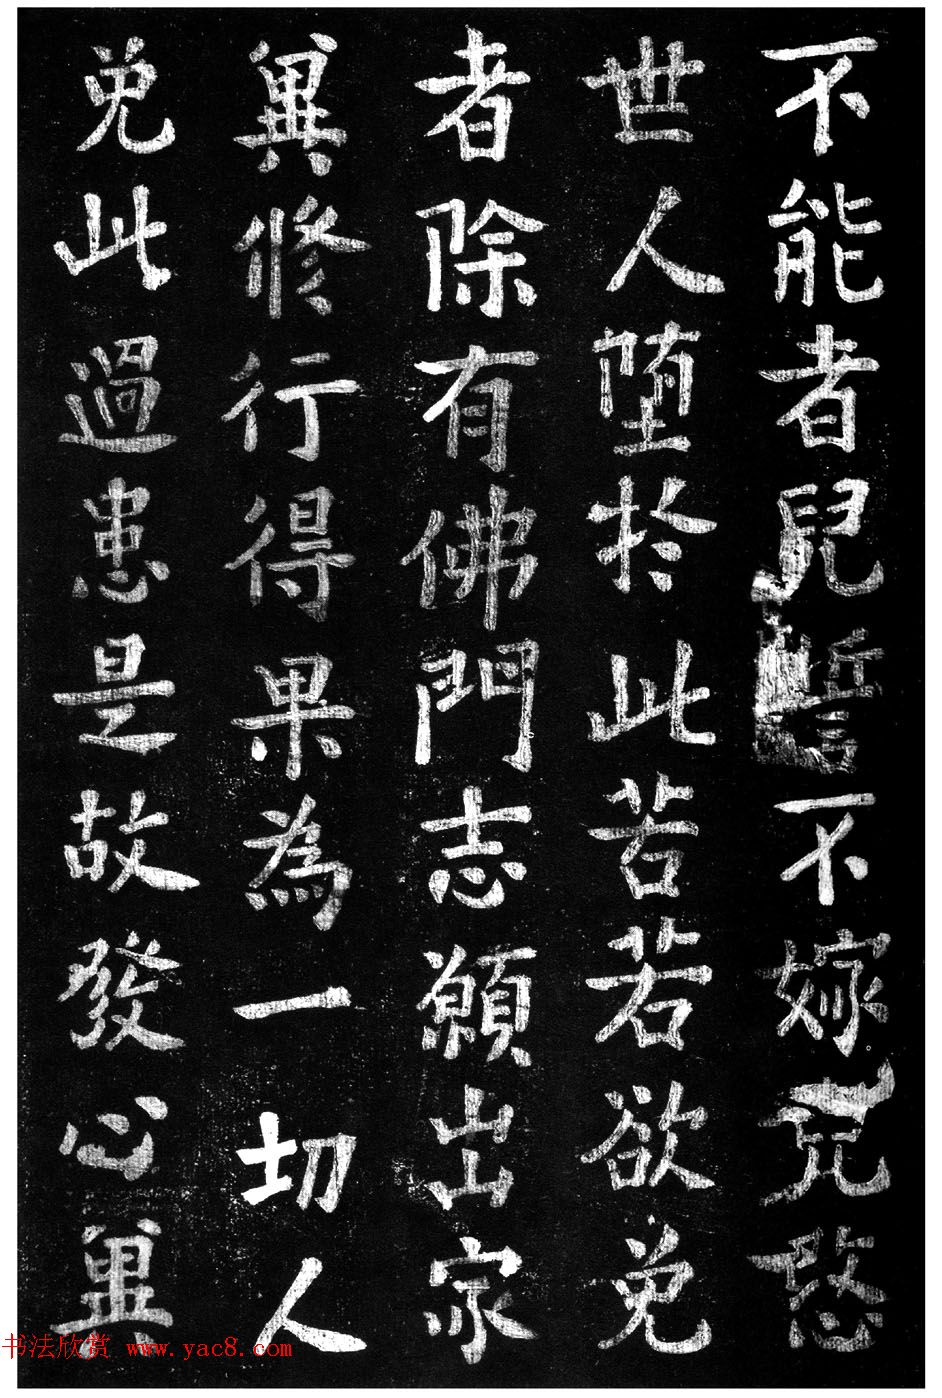 不能者兒誓不嫁兒愍
世人堕於此苦若欲免
者除有佛門志願出家
異修行得果為一切人
免此過患是故發心異
书法欣赏 www.yac8.com